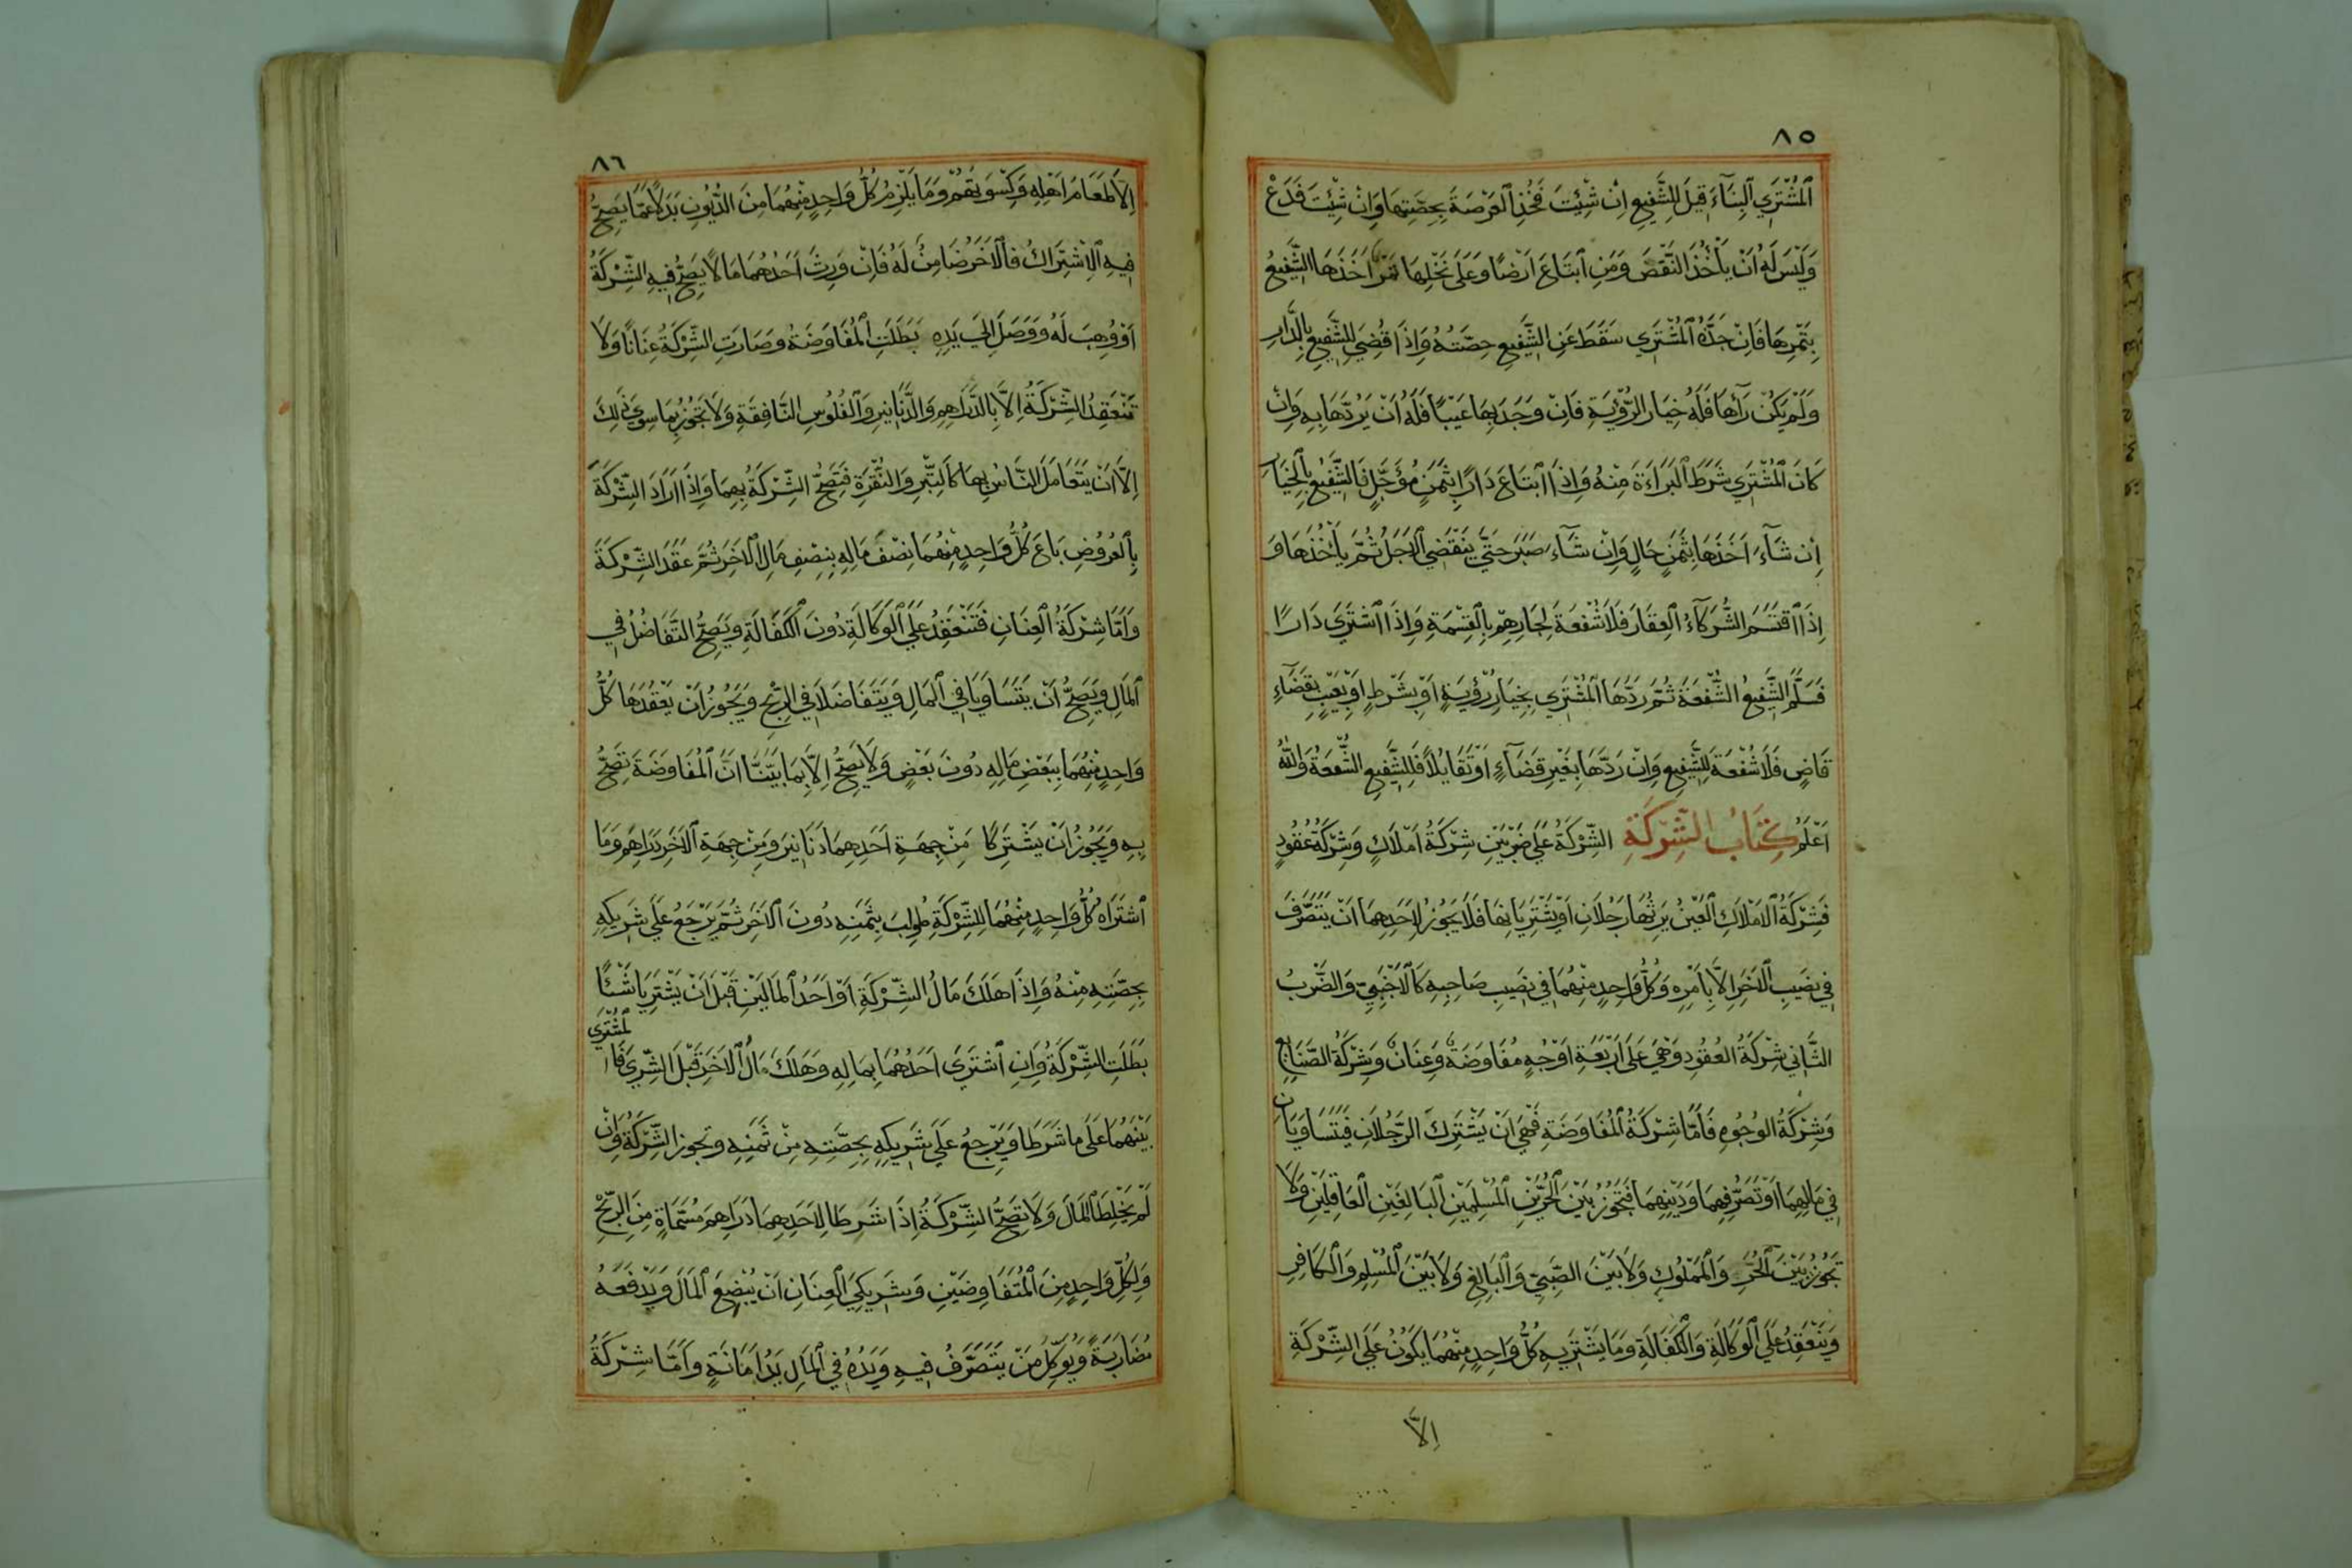 ٨٥
اَلْمُشْتَرِي اَلْبِنَآءَ قِيلَ لِلشَّفِيعِ اِنْ شِئْتَ فَخُذِ اَلْعَرْصَةَ بِحِصَّتِهَا وَاِنْ شِئْتَ فَدَعْ
وَلَيْسَ لَهُ اَنْ يَأْخُذَ النَّقْضَ وَمَنِ اَبْتَاعَ اَرْضًا وَعَلَى نَخْلِهَا ثَمَرٌ اَخَذَهَا الشَّفِيعُ
بِثَمَرِهَا فَاِنْ جَدَّهُ اَلْمُشْتَرِي سَقَطَ عَنِ الشَّفِيعِ حِصَّتُهُ وَاِذَا قُضِيَ لِلشَّفِيعِ بِالدَّارِ
وَلَمْ يَكُنْ رَآهَا فَلَهُ خِيَارُ الرُّؤْيَةِ فَاِنْ وَجَدَ بِهَا عَيْبًا فَلَهُ اَنْ يَرُدَّهَا بِهِ وَاِنْ
كَانَ اَلْمُشْتَرِي شَرَطَ اَلْبَرَاءَةَ مِنْهُ وَاِذَا اَبْتَاعَ دَارًا بِثَمَنٍ مُؤَجَّلٍ فَالشَّفِيعُ بِالْخِيَارِ
اِنْ شَآءَ اَخَذَهَا بِثَمَنٍ حَالٍ وَاِنْ شَآءَ صَبَرَ حَتَّى يَنْقَضِيَ اَلْاَجَلُ ثُمَّ يَأْخُذُهَا وَ
اِذَا اَقْتَسَمَ الشُّرَكَآءُ اَلْعَقَارَ فَلَا شُفْعَةَ لِجَارِهِمْ بِالْقِسْمَةِ وَاِذَا اَشْتَرَى دَارًا
فَسَلَّمَ الشَّفِيعُ الشُّفْعَةَ ثُمَّ رَدَّهَا اَلْمُشْتَرِي بِخِيَارِ رُؤْيَةٍ اَوْ بِشَرْطٍ اَوْ بِعَيْبٍ بِقَضَآءِ
قَاضٍ فَلَا شُفْعَةَ لِلشَّفِيعِ وَاِنْ رَدَّهَا بِغَيْرِ قَضَآءٍ اَوْ تَقَايُلًا فَلِلشَّفِيعِ الشُّفْعَةُ وَاللهُ
اَعْلَمُ كِتَابُ الشِّرْكَةِ الشِّرْكَةُ عَلَى ضَرْبَيْنِ شِرْكَةُ اَمْلَاكٍ وَشِرْكَةُ عُقُودٍ
فَشِرْكَةُ اَلْاَمْلَاكِ اَلْعَيْنُ يَرِثُهَا رَجُلَانِ اَوْ يَشْتَرِيَانِهَا فَلَا يَجُوزُ لِاَحَدِهِمَا اَنْ يَتَصَرَّفَ
فِي نَصِيبِ اَلْاَخَرِ اِلَّا بِاَمْرِهِ وَكُلُّ وَاحِدٍ مِنْهُمَا فِي نَصِيبِ صَاحِبِهِ كَالْاَجْنَبِيِّ وَالضَّرْبُ
الثَّانِي شِرْكَةُ الْعُقُودِ وَهِيَ عَلَى اَرْبَعَةِ اَوْجُهٍ مُفَاوَضَةٌ وَعِنَانٌ وَشِرْكَةُ الصَّنَايِعِ
وَشِرْكَةُ الْوُجُوهِ فَاَمَّا شِرْكَةُ اَلْمُفَاوَضَةِ فَهِيَ اَنْ يَشْتَرِكَ الرَّجُلَانِ فَيَتَسَاوَيَانِ
فِي مَالِهِمَا اَوْ تَصَرُّفِهِمَا وَدَيْنِهِمَا فَتَجُوزُ بَيْنَ اَلْحُرَّيْنِ اَلْمُسْلِمَيْنِ اَلْبَالِغَيْنِ اَلْعَاقِلَيْنِ وَلَا
تَجُوزُ بَيْنَ اَلْحُرِّ وَالْمَمْلُوكِ وَلَا بَيْنَ الصَّبِيِّ وَالْبَالِغِ وَلَا بَيْنَ اَلْمُسْلِمِ وَالْكَافِرِ
وَيَنْعَقِدُ عَلَى اَلْوَكَالَةِ وَالْكَفَالَةِ وَمَا يَشْتَرِيهِ كُلُّ وَاحِدٍ مِنْهُمَا يَكُونُ عَلَى الشِّرْكَةِ
اِلَّا
٨٦
اِلَّا طَعَامَ اَهْلِهِ وَكِسْوَتَهُمْ وَمَا يَلْزَمُ كُلَّ وَاحِدٍ مِنْهُمَا مِنَ الدُّيُونِ بَدَلًا عَمَّا يَصِحُّ
فِيهِ اَلْاِشْتِرَاكُ فَالْاَخَرُ ضَامِنٌ لَهُ فَاِنْ وَرِثَ اَحَدُهُمَا مَا لَا يَصِحُّ فِيهِ الشِّرْكَةُ
اَوْ وُهِبَ لَهُ وَوَصَلَ اِلَى يَدِهِ بَطَلَتِ اَلْمُفَاوَضَةُ وَصَارَتِ الشِّرْكَةُ عِنَانًا وَلَا
تَنْعَقِدُ الشِّرْكَةُ اِلَّا بِالدَّرَاهِمِ وَالدَّنَانِيرِ وَالْفُلُوسِ النَّافِقَةِ وَلَا تَجُوزُ بِمَا سِوَى ذَلِكَ
اِلَّا اَنْ يَتَعَامَلَ النَّاسُ بِهَا كَالتِّبْرِ وَالنُّقْرَةِ فَتَصِحُّ الشِّرْكَةُ بِهِمَا وَاِذَا اَرَادَ الشِّرْكَةَ
بِالْعُرُوضِ بَاعَ كُلُّ وَاحِدٍ مِنْهُمَا نِصْفَ مَالِهِ بِنِصْفِ مَالِ اَلْاَخَرِ ثُمَّ عَقَدَ الشِّرْكَةَ
وَاَمَّا شِرْكَةُ اَلْعِنَانِ فَتَنْعَقِدُ عَلَى اَلْوَكَالَةِ دُونَ اَلْكَفَالَةِ وَيَصِحُّ التَّفَاضُلُ فِي
اَلْمَالِ وَيَصِحُّ اَنْ يَتَسَاوَيَا فِي اَلْمَالِ وَيَتَفَاضَلَا فِي الرِّبْحِ وَيَجُوزُ اَنْ يَعْقُدَهَا كُلُّ
وَاحِدٍ مِنْهُمَا بِبَعْضِ مَالِهِ دُونَ بَعْضٍ وَلَا يَصِحُّ اِلَّا بِمَا بَيَّنَّا اَنَّ اَلْمُفَاوَضَةَ تَصِحُّ
بِهِ وَيَجُوزُ اَنْ يَشْتَرِكَا مِنْ جِهَةِ اَحَدِهِمَا دَنَانِيرَ وَمِنْ جِهَةِ اَلْاَخَرِ دَرَاهِمَ وَمَا
اَشْتَرَاهُ كُلُّ وَاحِدٍ مِنْهُمَا لِلشِّرْكَةِ طُولِبَ بِثَمَنِهِ دُونَ اَلْاَخَرِ ثُمَّ يَرْجِعُ عَلَى شَرِيكِهِ
بِحِصَّتِهِ مِنْهُ وَاِذَا هَلَكَ مَالُ الشِّرْكَةِ اَوْ اَحَدُ اَلْمَالَيْنِ قَبْلَ اَنْ يَشْتَرِيَا شَيْئًا
بَطَلَتِ الشِّرْكَةُ وَاِنِ اَشْتَرَى اَحَدُهُمَا بِمَالِهِ وَهَلَكَ مَالُ اَلْاَخَرِ قَبْلَ الشِّرَى فَالْمُشْتَرَى
بَيْنَهُمَا عَلَى مَا شَرَطَا وَيَرْجِعُ عَلَى شَرِيكِهِ بِحِصَّتِهِ مِنْ ثَمَنِهِ وَتَجُوزُ الشِّرْكَةُ وَاِنْ
لَمْ يَخْلِطَا اَلْمَالَ وَلَا تَصِحُّ الشِّرْكَةُ اِذَا شَرَطَا لِاَحَدِهِمَا دَرَاهِمَ مُسَمَّاةٍ مِنَ الرِّبْحِ
وَلِكُلِّ وَاحِدٍ مِنَ اَلْمُتَفَاوِضَيْنِ وَشَرِيكَيِ اَلْعِنَانِ اَنْ يُبْضِعَ اَلْمَالَ وَيَدْفَعَهُ
مُضَارَبَةً وَيُوَكِّلَ مَنْ يَتَصَرَّفُ فِيهِ وَيَدُهُ فِي اَلْمَالِ يَدُ اَمَانَةٍ وَاَمَّا شِرْكَةُ